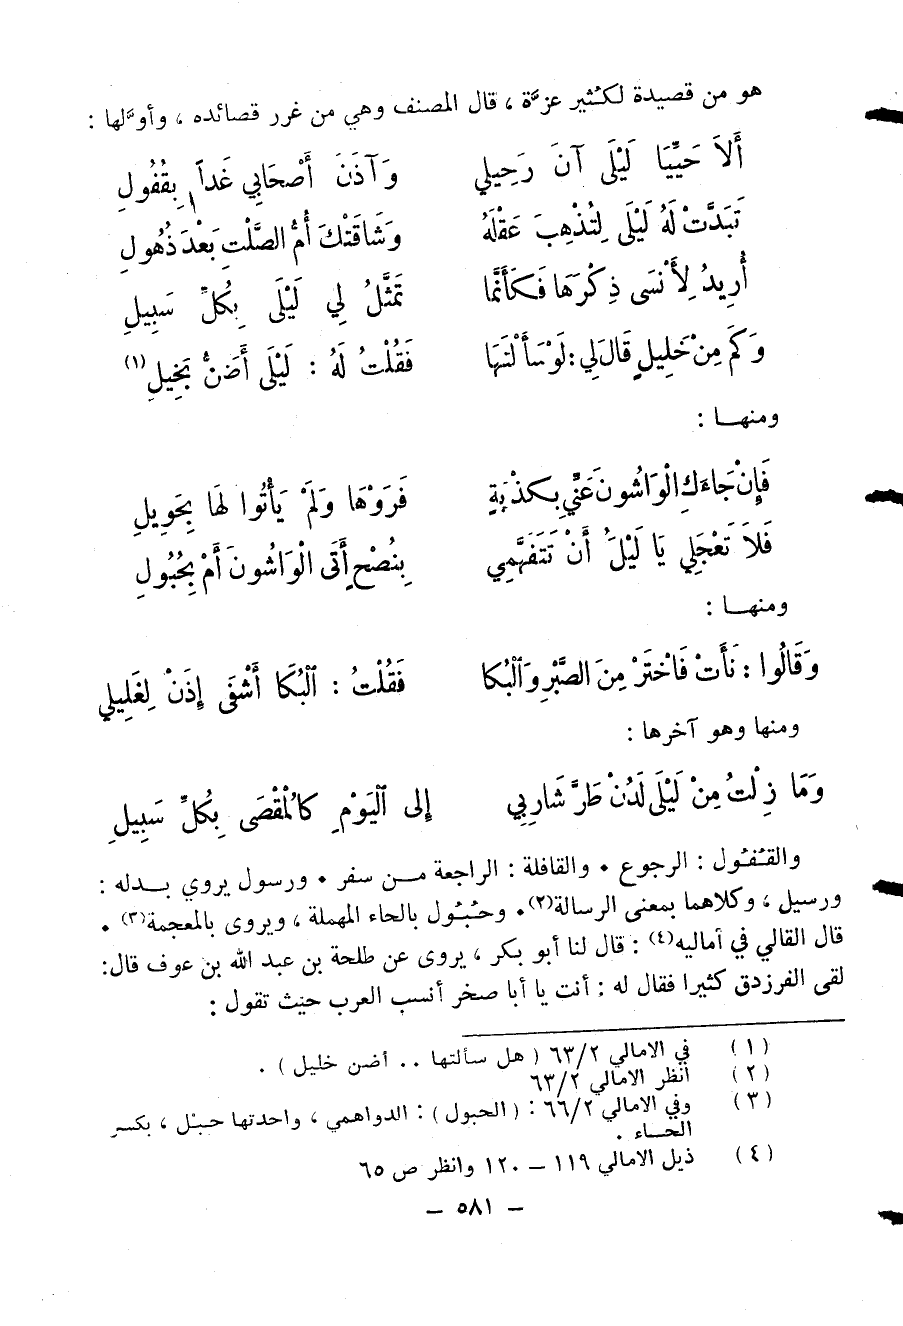 هو من قصيدة لكثير عزة ، قال المصنف وهي من غرر قصائده ، وأولها :
أَلاَ حَيِّيَا لَيْلَى آنَ رَحِيلي وَآذَنَ أَصْحَابي غَداً بِقُفُولِ
تَبَدَّتْ لَهُ لَيْلَى لِتُذْهِبَ عَقْلَهُ وَشَاقَتْكَ أُمُّ الصَّلْتِ بَعْدَ ذُهُولِ
أُرِيدُ لِأَنْسَى ذِكْرَهَا فَكَأَنَّمَا تَمَثَّلُ لِي لَيْلَى بِكُلِّ سَبِيلِ
وَكَمْ مِنْ خَلِيلٍ قَالَ لِي : لَوْ سَأَلْتَهَا فَقُلْتُ لَهُ : لَيْلَى أَضَنُّ بَخِيلِ (١)
ومنهـا :
فَإِنْ جَاءَكِ الْوَاشُونَ عَنِّي بِكَذْبَةٍ فَرَوْهَا وَلَمْ يَأْتُوا لَهَا بِحَوِيلِ
فَلاَ تَعْجَلِي يَا لَيْلَ أَنْ تَتَفَهَّمِي بِنُصْحٍ أَتَى الْوَاشُونَ أَمْ بِحُبُولِ
ومنهـا :
وَقَالُوا : نَأَتْ فَاخْتَرْ مِنَ الصَّبْرِ وَالْبُكَا فَقُلْتُ : الْبُكَا أَشْفَى إِذَنْ لِغَلِيلي
ومنها وهو آخرها :
وَمَا زِلْتُ مِنْ لَيْلَى لَدُنْ طَرَّ شَارِبِي إِلى الْيَوْمِ كَالمُقْصَى بِكُلِّ سَبِيلِ
والقُفُول : الرجوع ٠ والقافلة : الراجعة مـن سفر ٠ ورسول يروي بـدله :
ورسيل ، وكلاهما بمعنى الرسالة(٢)٠ وحُبُول بالحاء المهملة ، ويروى بالمعجمة(٣) ٠
قال القالي في أماليه(٤) : قال لنا أبو بكر ، يروى عن طلحة بن عبد الله بن عوف قال:
لقى الفرزدق كثيرا فقال له : أنت يا أبا صخر أنسب العرب حيث تقول :
(١) في الامالي ٦٣/٢ ( هل سألتها .. أضن خليل ) .
(٢) أنظر الامالي ٦٣/٢
(٣) وفي الامالي ٦٦/٢ : (الحبول) : الدواهي ، واحدتها حبل ، بكسر
الحـاء .
(٤) ذيل الامالي ١١٩ – ١٢٠ وانظر ص ٦٥
– ٥٨١ –